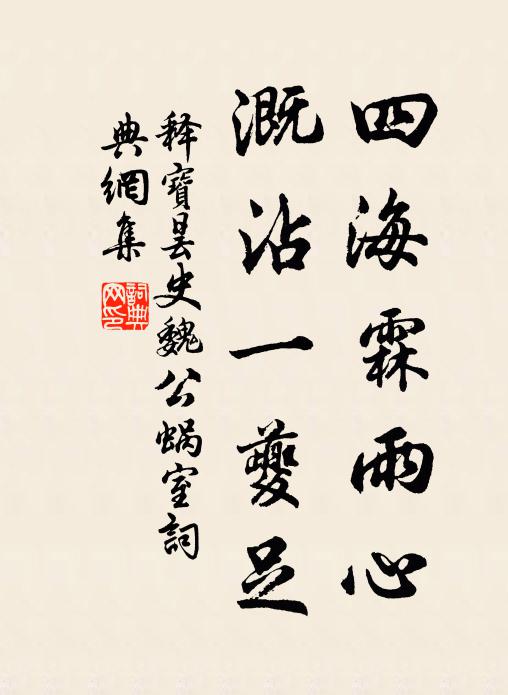 四海霖雨心
溉沾一夔足
释寶曇史魏公蝸室詞
典網集
詞典
网印